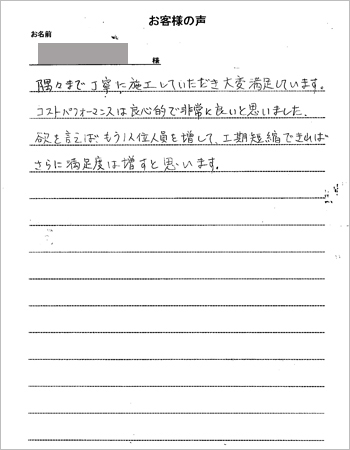 お客様の声
お名前
様
隅々まで丁寧に施工していただき大変満足しています。
コストパフォーマンスは良心的で非常に良いと思いました。
欲を言えばもう1人位人員を増して、工期短縮できれば
さらに満足度は増すと思います。